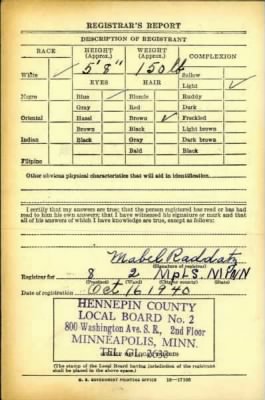 REGISTRAR'S REPORT
DESCRIPTION OF REGISTRANT
RACE HEIGHT (Approx.) WEIGHT (Approx.) COMPLEXION
5' 8" 150 lb
White ✓ EYES HAIR Sallow
Light ✓
Negro Blue ✓ Blonde Ruddy
Gray Red Dark
Oriental Hazel Brown ✓ Freckled
Brown Black Light brown
Indian Black Gray Dark brown
Bald Black
Filipino
Other obvious physical characteristics that will aid in identification
I certify that my answers are true; that the person registered has read or has had
read to him his own answers; that I have witnessed his signature or mark and that
all of his answers of which I have knowledge are true, except as follows:
Mabel Raddatz
(Signature of registrar)
Registrar for 8 2 Mpls. Minn
(Precinct) (Ward) (City or county) (State)
Date of registration Oct 16 1940
HENNEPIN COUNTY
LOCAL BOARD No. 2
800 Washington Ave. S. E., 2nd Floor
MINNEAPOLIS, MINN.
(The stamp of the Local Board having jurisdiction of the registrant
shall be placed in the above space.)
U. S. GOVERNMENT PRINTING OFFICE 16-17105